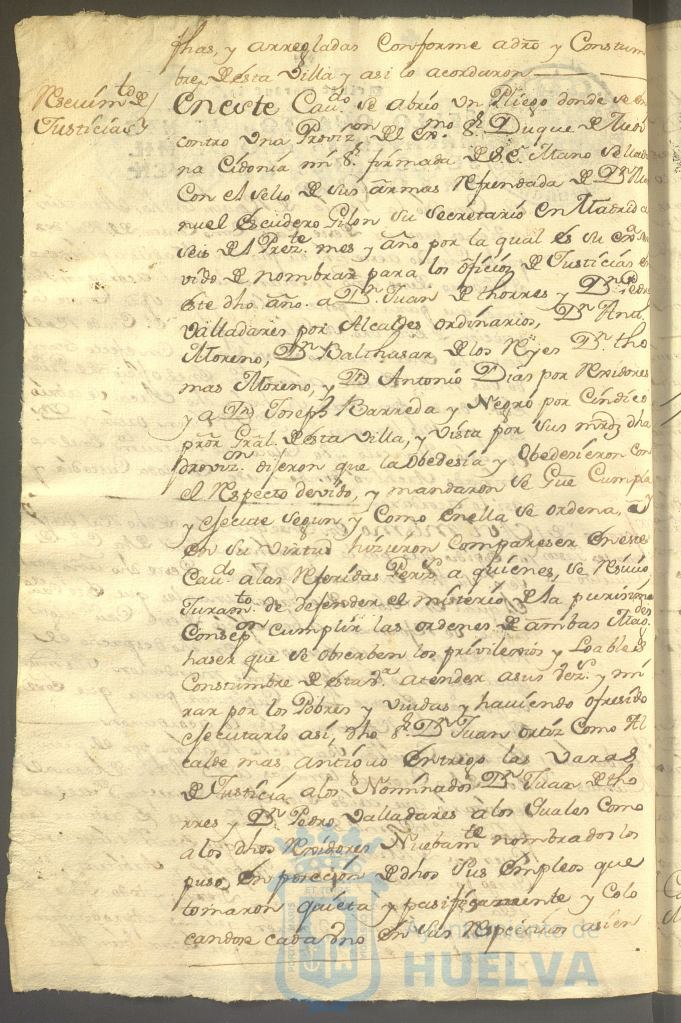 fhas, y arregladas Conforme adro y Constum
bre desta Villa y asi lo acordaron
Resevim.to de
Justicias
En este Cav.do se abrio un Pliego donde se en
contro una Proviz.on del Ex.mo S.r Duque de Medi
na Cidonia mi S.r firmada de S.E. Mano Sellada
Con el sello de sus armas Refrendada de D.n Ma
nuel Escudero Gilon su secretario en Madrid a
seis del Prez.te mes y año por la qual es su Ex.a ser
vido de nombrar para los oficios de Justicias en
este dho año a D.n Juan de thorres y D.n Pedro
Valladares por Alcaldes ordinarios, D.n
Moreno, D.n Balthasar de los Reyes D.n tho
mas Moreno, y D.n Antonio Dias por Rexidores
y a D.n Joseph Barreda y Negro por Cindico
pror Gral desta Villa, y vista por sus mrdz dha
proviz.on dijeron que la obedesia y obedesieron con
el Respecto devido, y mandaron se Gue Cumpla
y ejecute segun y Como en ella se ordena, y
en su virtud hizieron compareser en este
Cav.do alas Referidas Pers.s a quienes, se Resivio
Juram.to de defender el misterio de la purisima
Consep.on cumplir las ordenes de ambas Mag.des
haser que se obcerben los privilexios y Loables
Constumbre de esta V.a atender asus dez.s y mi
rar por los Pobres y viudas y haviendo ofresido
ejecutarlo asi, dho S.r D.n Juan ortiz Como Al
calde mas antiguo entrego las Varas
de Justicia alos Nominados D.n Juan de tho
rres y D.n Pedro Valladares a los quales Como
a los dhos Rexidores Nuebam.te nombrados los
puso en poseción de dhos sus Empleos que
tomaron quieta y pasificamente y Colo
candose cada uno en sus respectivos asien
Ayuntamiento de
HUELVA